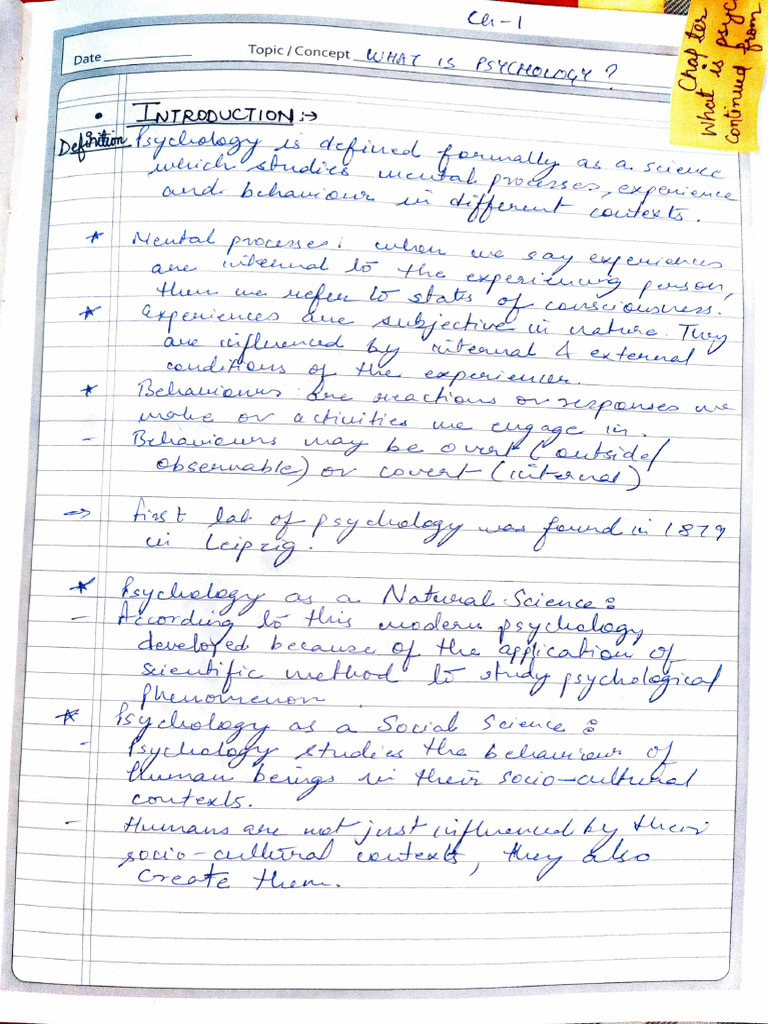 Ch-1
Date
Topic / Concept WHAT IS PSYCHOLOGY?
Chapter
What is psyc
continued from
• INTRODUCTION :→
Definition Psychology is defined formally as a science
which studies mental processes, experience
and behaviour in different contexts.
* Mental processes: when we say experiences
are internal to the experiencing person,
then we refer to states of consciousness.
* Experiences are subjective in nature. They
are influenced by internal & external
conditions of the experiencer.
* Behaviours are reactions or responses we
make or activities we engage in.
- Behaviours may be overt (outside/
observable) or covert (internal)
⇒ first lab of psychology was found in 1879
in Leipzig.
* Psychology as a Natural Science:
- According to this modern psychology
developed because of the application of
scientific method to study psychological
phenomenon.
* Psychology as a Social Science:
- Psychology studies the behaviour of
human beings in their socio-cultural
contexts.
- Humans are not just influenced by their
socio-cultural contexts, they also
create them.